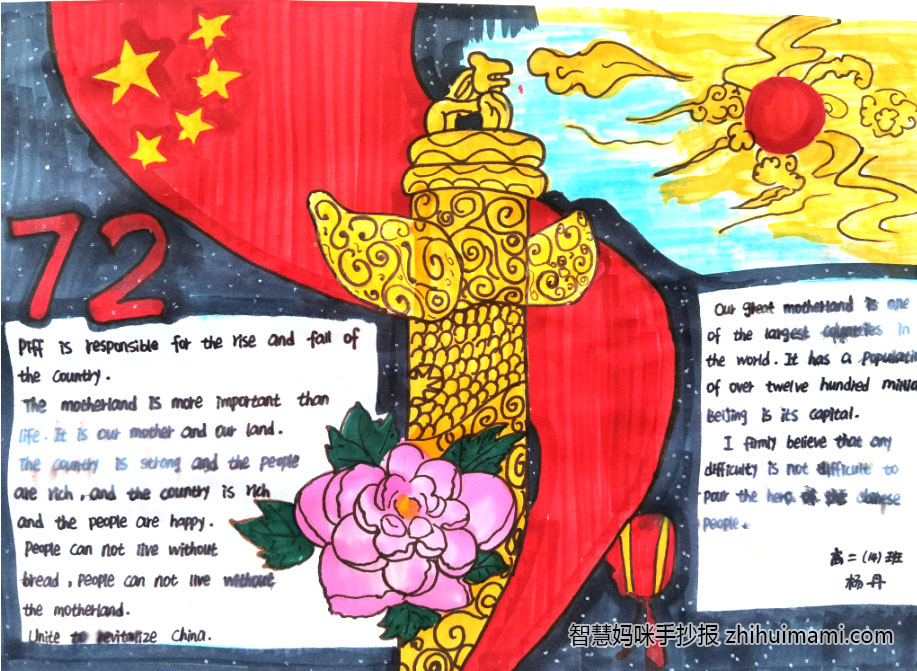 72
Piff is responsible for the rise and fall of
the country.
The motherland is more important than
life. It is our mother and our land.
The country is strong and the people
are rich, and the country is rich
and the people are happy.
People can not live without
bread, people can not live without
the motherland.
Unite to revitalize China.
Our great motherland is one
of the largest countries in
the world. It has a populati
of over twelve hundred
Beijing is its capital.
I firmly believe that any
difficulty is not difficult to
pour the hero of the Chinese
people.
高二(14)班
杨丹
智慧妈咪手抄报 zhihuimami.com